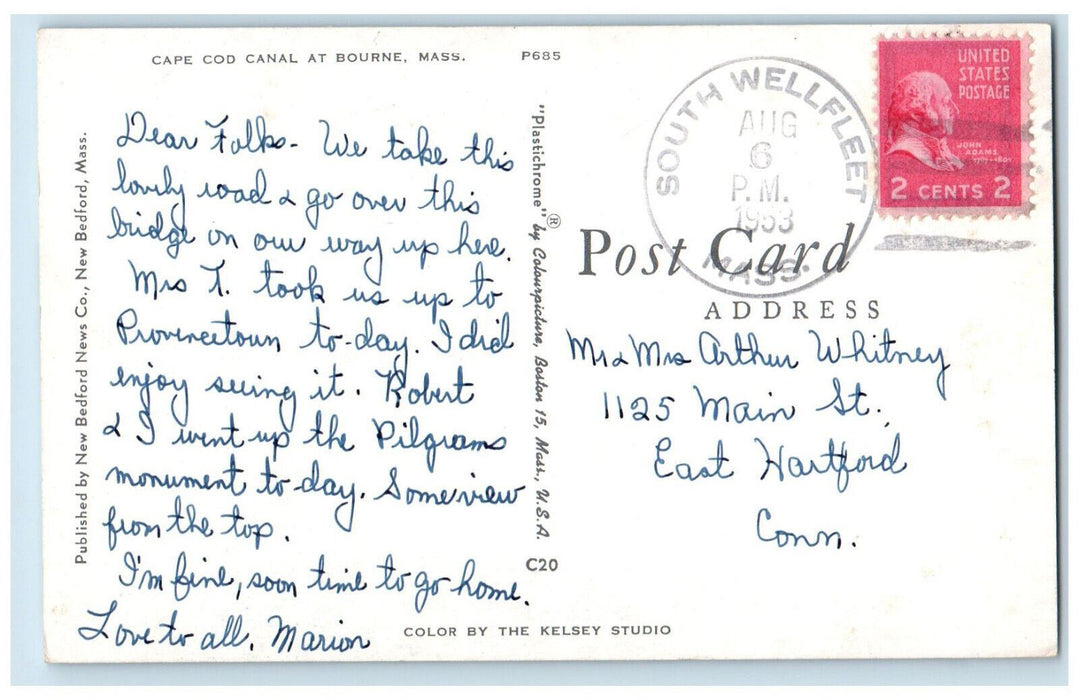 CAPE COD CANAL AT BOURNE, MASS. P685
Dear Folks - We take this
lovely road & go over this
bridge on our way up here.
Mrs T. took us up to
Provincetown to-day. I did
enjoy seeing it. Robert
& I went up the Pilgrams
monument to-day. Some view
from the top.
I'm fine, soon time to go home.
Love to all. Marion
Published by New Bedford News Co., New Bedford, Mass.
"Plastichrome" ® by Colourpicture, Boston 15, Mass., U.S.A.
C20
COLOR BY THE KELSEY STUDIO
SOUTH WELLFLEET
AUG
6
P.M.
1953
MASS.
UNITED
STATES
POSTAGE
JOHN
ADAMS
2 CENTS 2
Post Card
ADDRESS
Mr & Mrs Arthur Whitney
1125 Main St.
East Hartford
Conn.